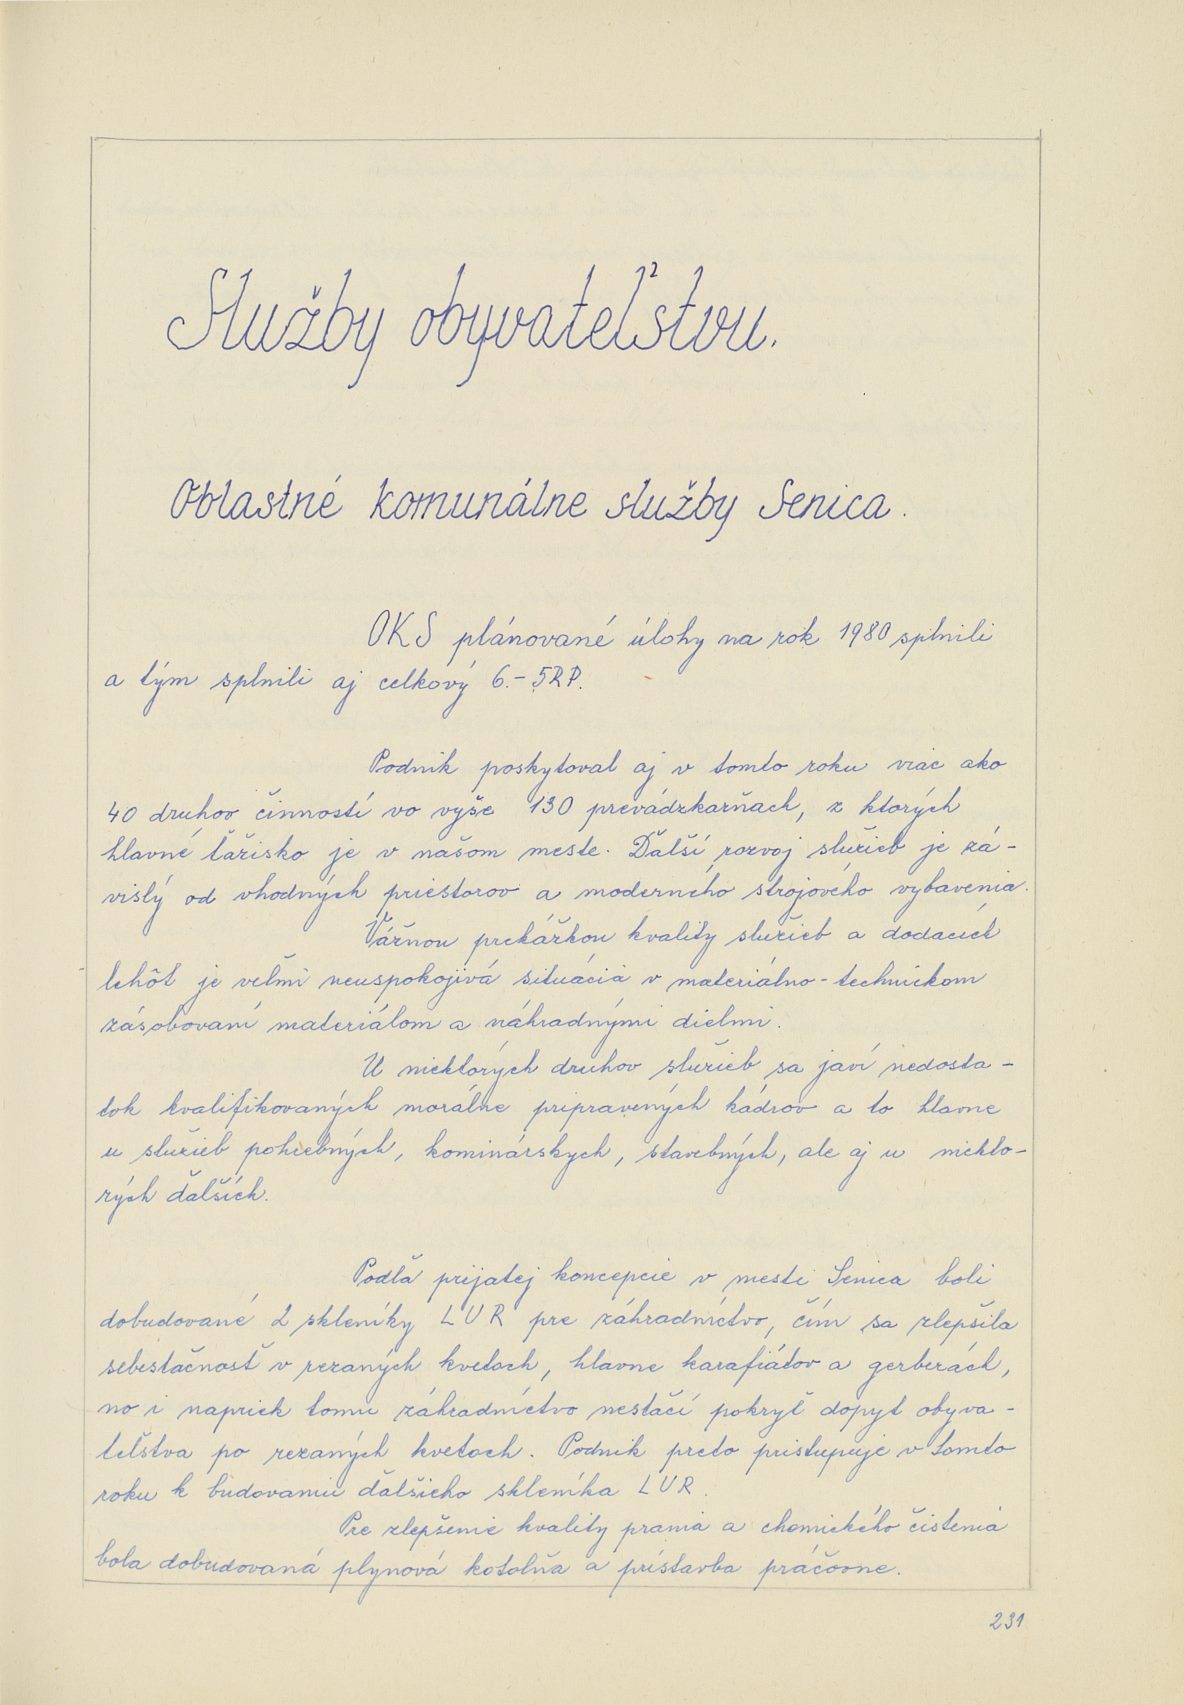 Služby obyvateľstvu.
Oblastné komunálne služby Senica.
OKS plánované úlohy na rok 1980 splnili
a tým splnili aj celkový 6.-5RP.
Podnik poskytoval aj v tomto roku viac ako
40 druhov činností vo vyše 130 prevádzkarňach, z ktorých
hlavné ťažisko je v našom meste. Ďalší rozvoj služieb je zá-
vislý od vhodných priestorov a moderného strojového vybavenia.
Vážnou prekážkou kvality služieb a dodacích
lehôt je veľmi neuspokojivá situácia v materiálno-technickom
zásobovaní materiálom a náhradnými dielmi.
U niektorých druhov služieb sa javí nedosta-
tok kvalifikovaných morálne pripravených kádrov a to hlavne
u služieb pohrebných, kominárskych, stavebných, ale aj u niekto-
rých ďalších.
Podľa prijatej koncepcie v meste Senica boli
dobudované 2 skleníky LUR pre záhradníctvo, čím sa zlepšila
sebestačnosť v rezaných kvetoch, hlavne karafiátov a gerberách,
no i napriek tomu záhradníctvo nestačí pokryť dopyt obyva-
teľstva po rezaných kvetoch. Podnik preto pristupuje v tomto
roku k budovaniu ďalšieho skleníka LUR.
Pre zlepšenie kvality prania a chemického čistenia
bola dobudovaná plynová kotolňa a prístavba práčovne.
231